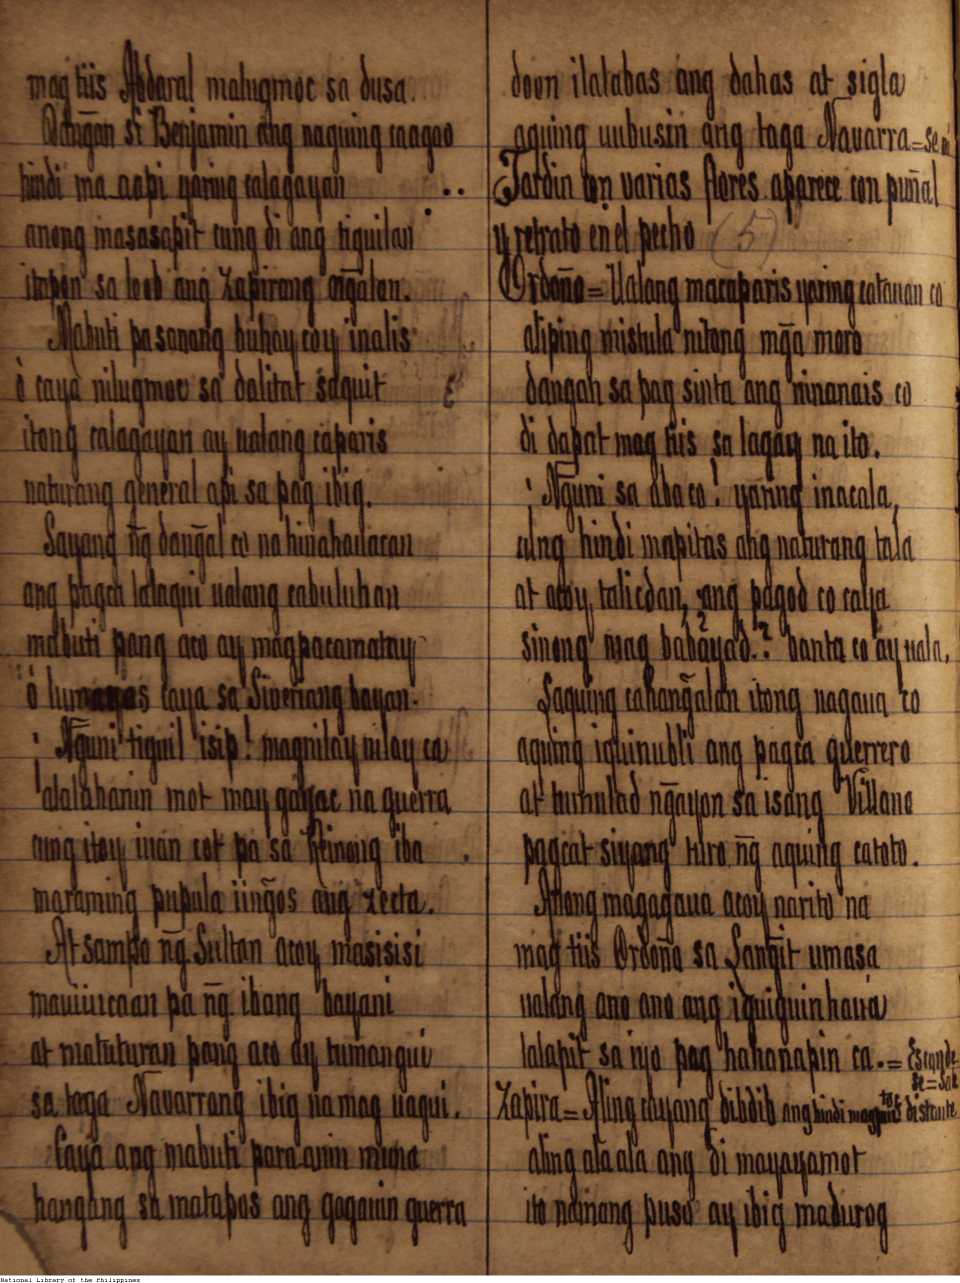 mag tiis Abdaral malugmoc sa dusa.
si Benjamin ang naguing caagao
hindi ma aapi yaring calagayan
anong masasapit cung di ang tiguilan
itipon sa loob ang Zapirang
Mabuti pa sanang buhay coy inalis
ò caya nilugmoc sa dalitat saquit
itong calagayan ay ualang caparis
naturang general api sa pag ibig.
Sayang ng̃ dang̃al co na hinahauacan
ang pagca lalaqui ualang cabuluhan
mabuti pang aco ay magpacamatay
ò caya sa bayan.
¡Ng̃uni tiguil isip! magnilay nilay ca
alalahanin mot may gayac na guerra
cung itoy iuan cot pa sa iba
maraming pupula iing̃os ang zecta.
At sampo ng̃ Sultan acoy masisisi
mauiuicaan pa ng̃ ibang bayani
at matuturan pang aco ay tumangui
sa taga Navarrang ibig na mag uagui.
Caya ang mabuti para-anin muna
hangang sa matapos ang gagauin guerra
doon ilalabas ang dahas at sigla
aquing uubusin ang taga Navarra=
Jardin con varias flores aparece con puñal
y retrato en el pecho (5)
Ordoña= Ualang macaparis yaring catauan co
aliping mistula nitong mg̃a moro
dang̃an sa pag sinta ang ninanais co
di dapat mag tiis sa lagay na ito.
¡Ng̃uni sa aba co! yaring inacala,
cung hindi mapitas ang naturang tala
at acoy talicdan, ang pagod co caya
sinong mag babayad? banta co ay uala.
Saquing cahang̃alan itong nagaua co
aquing iguinubli ang pagca guerrero
at tumulad ng̃ayon sa isang Villano
pagcat siyang turo ng̃ aquing catoto.
Anong magagaua acoy narito na
mag tiis Ordoña sa Lang̃it umasa
ualang ano ano ang iguiguinhaua
lalapit sa iyo pag hahanapin ca.= Esconde
se=Sale
Zapira= Aling cayang dibdib ang hindi distante
aling ala ala ang di mayayamot
ito namang puso ay ibig madurog
National Library of the Philippines